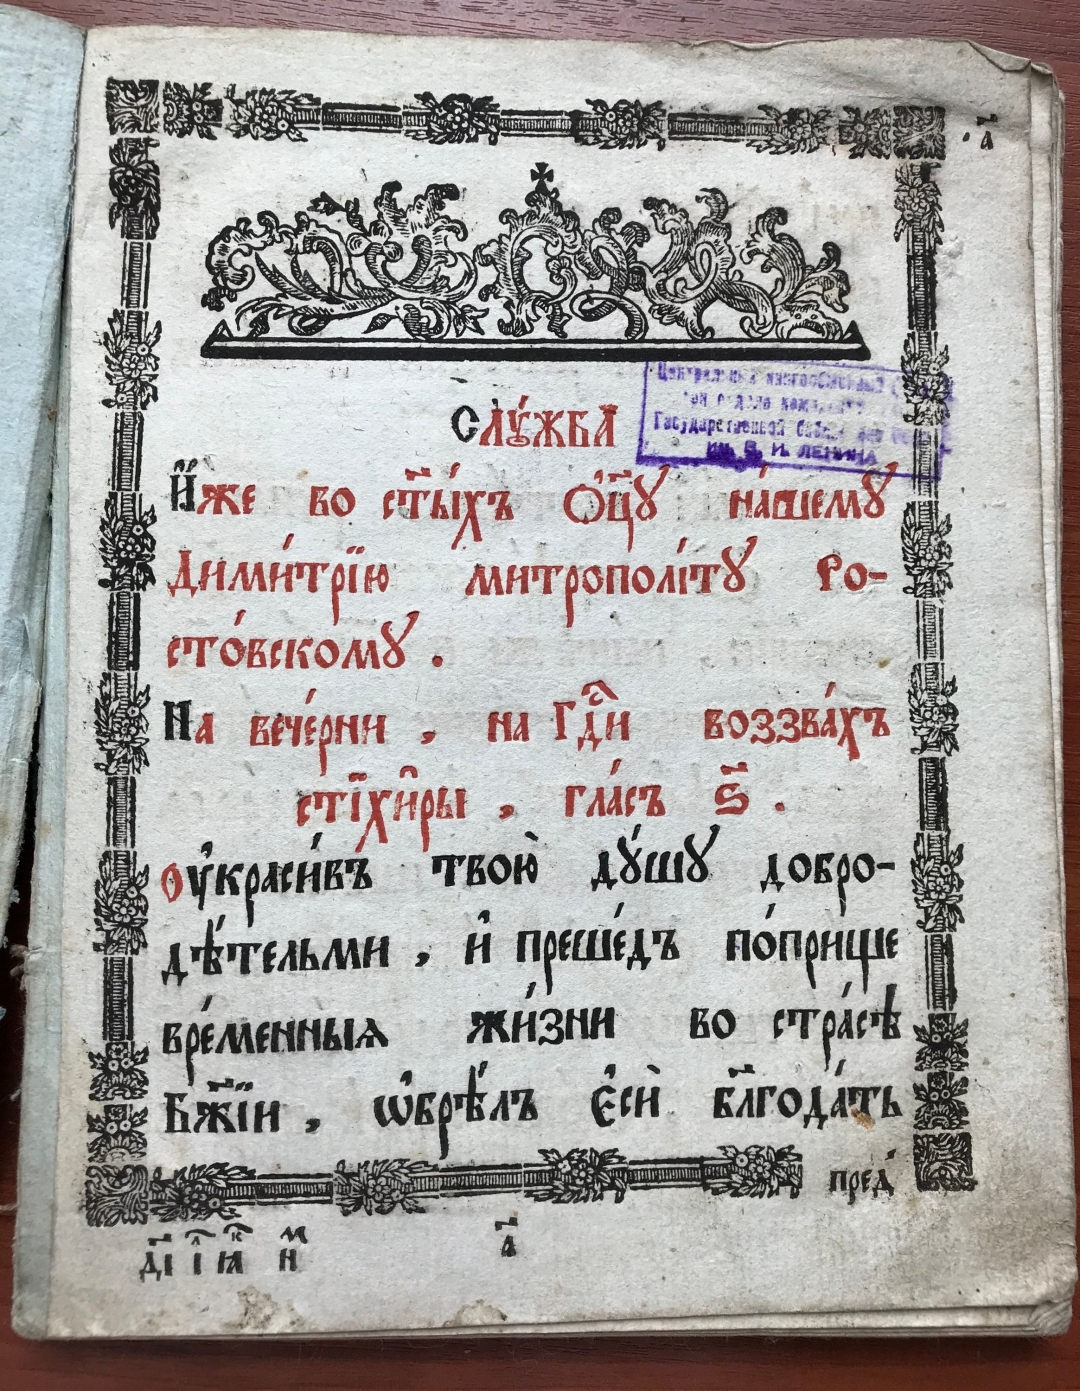 .а҃
Слꙋ́жба
Центральный книгообменный
Государственной
им. В. И. ЛЕНИНА
И҆́же во ст҃ы́хъ Ѻ҆ц҃ꙋ̀ на́шемꙋ
Дими́трїю митрополі́тꙋ Ро-
сто́вскомꙋ .
На вече́рни , на Гдⷭ҇и воззва́хъ
стїхи̑ры , гла́съ ѕ҃ .
Оу҆краси́въ твою̀ дꙋ́шꙋ добро-
дѣ́тельми , и҆ преше́дъ по́прище
вре́менныѧ жи́зни во стра́сѣ
Бж҃їи , ѡ҆брѣ́лъ є҆сѝ бл҃года́ть
пред̾
а҃